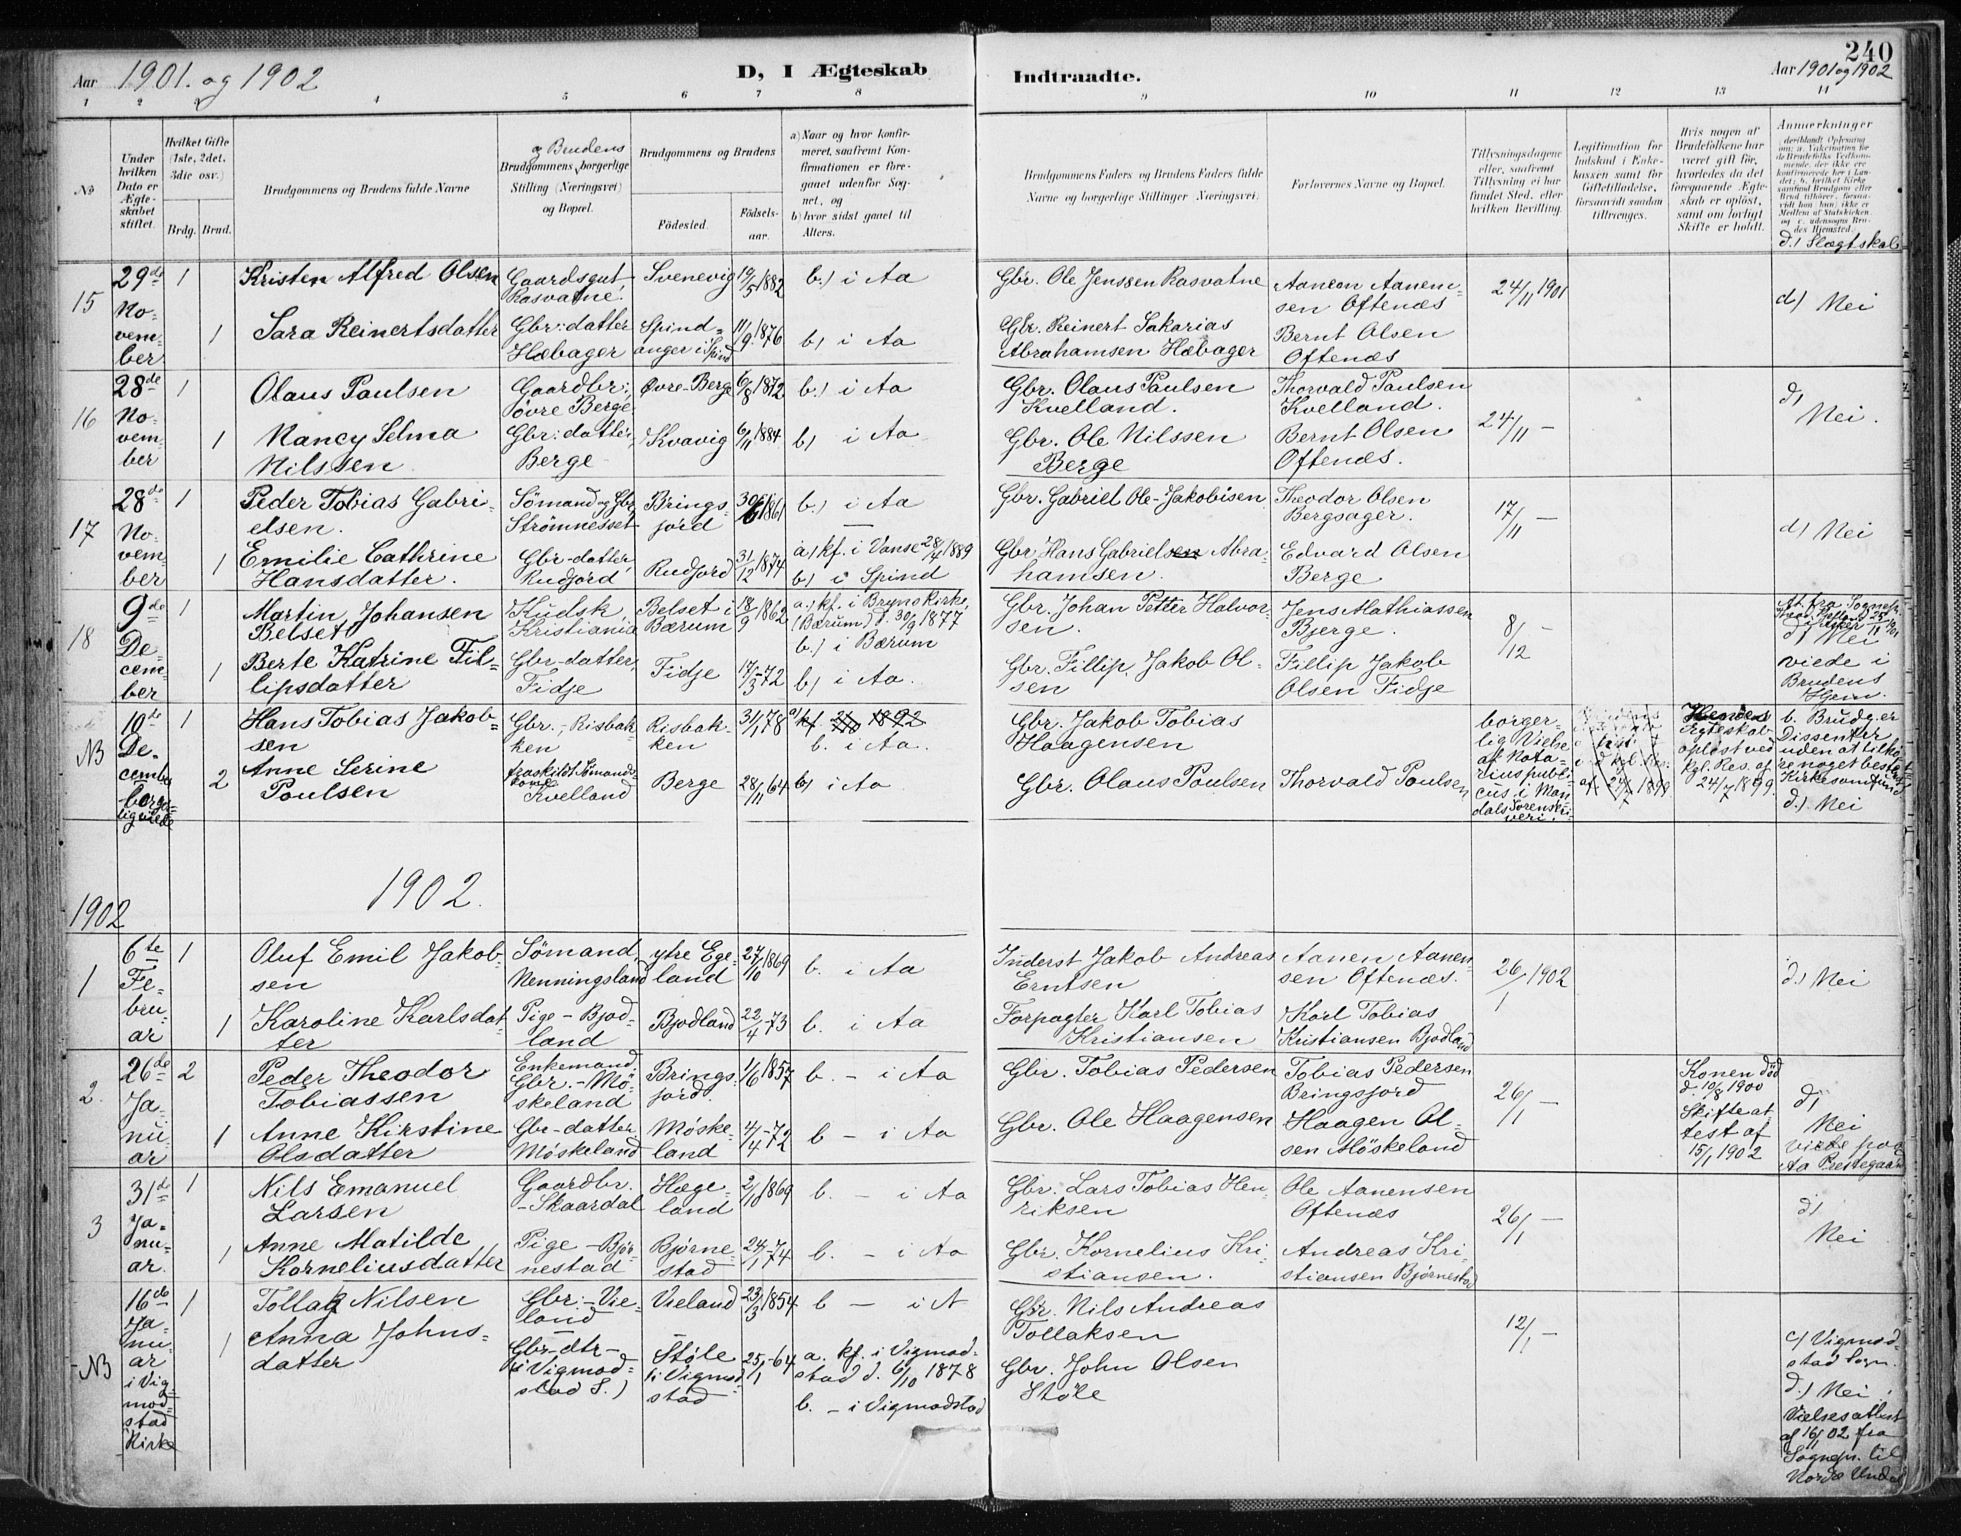 240
Aar 1901. og 1902
D, I Ægteskab
Indtraadte.
Aar 1901 og 1902
1 2 3 4 5 6 7 8 9 10 11 12 13 14
No
Under hvilken Dato er Ægteskabet stiftet.
Hvilket Gifte (1ste, 2det, 3die osv.)
Brdg. Brud.
Brudgommens og Brudens fulde Navne
og Brudens
Brudgommens borgerlige Stilling (Næringsvei) og Bopæl.
Brudgommens og Brudens
Fødested.
Fødselsaar.
a) Naar og hvor konfirmeret, saafremt Konfirmationen er foregaaet udenfor Sognet, og
b) hvor sidst gaaet til Alters.
Brudgommens Faders og Brudens Faders fulde Navne og borgerlige Stillinger (Næringsvei)
Forlovernes Navne og Bopæl.
Tillysningsdagene eller, saafremt Tillysning ei har fundet Sted, efter hvilken Bevilling.
Legitimation for Indskud i Enkekassen samt for Giftetilladelse, forsaavidt saadan tiltrænges.
Hvis nogen af Brudefolkene har været gift før, hvorledes da det foregaaende Ægteskab er opløst, samt om lovligt Skifte er holdt.
Anmerkninger
d.) Slægtskab
15
29de November
1
Kristen Alfred Olsen
Gaardsgut, Rasvatne.
Svenevig
19/5 1882
b.) i Aa
Gbr. Ole Jenssen Rasvatne
Aanen Aanensen Oftenæs
24/11 1901
d) Nei
1
Sara Reinertsdatter
Gbr.datter Hæbager
Spindanger i Spind
11/9 1876
b) i Aa
Gbr. Reinert Sakarias Abrahamsen Hæbager
Bernt Olsen Oftenæs
16
28de November
1
Olaus Paulsen
Gaardbr., øvre Berge
Øvre-Berge
6/8 1872
b.) i Aa
Gbr. Olaus Paulsen Kvelland.
Thorvald Paulsen Kvelland.
24/11 —
d) Nei.
1
Nancy Selma Nilssen
Gbr: datter, Berge
Kvavig
6/11 1884
b) i Aa
Gbr. Ole Nilssen Berge
Bernt Olsen Oftenæs.
17
28de November
1
Peder Tobias Gabrielsen.
Sömand og Gbr, Strømnesset
Bringsjord
30/6 1861
b.) i Aa
Gbr. Gabriel Ole-Jakobsen
Theodor Olsen Bergsager.
17/11 —
d) Nei
1
Emilie Cathrine Hansdatter.
Gbr-datter, Rudjord
Rudjord
31/12 1874
a) kf. i Vanse 28/4 1889
b) i Spind
Gbr. Hans Gabrielsen Abrahamsen.
Edvard Olsen Berge
18
9de December
1
Martin Johansen Belset
Kudsk, Kristiania
Belset i Bærum
18/9 1862
a.) kf. i Bryns Kirke, (Bærum) d. 30/9 1877
b.) i Bærum
Gbr. Johan Petter Halvorsen.
Jens Mathiassen Bjerge.
8/12 —
d) Nei
viede i Brudens Hjem.
1
Berte Katrine Fillipsdatter
Gbr-datter, Fidje
Fidje
17/3 -72
b) i Aa.
Gbr. Fillip Jakob Olsen
Fillip Jakob Olsen Fidje
NB
10de December borgerlig viede
1
Hans Tobias Jakobsen
Gbr., Risbakken
Risbakken
31/1 78
a) kf. 1892
b. i Aa.
Gbr. Jakob Tobias Haagensen
borgerlig Vielse af Notarius publicus i Mandals Sorenskriveri.
Ægteskab opløst ved kgl. Res. af 24/7 1899.
b. Brudg. er Dissenter uden at tilhøre noget bestemt Kirkesamfund
d.) Nei
2
Anne Serine Poulsen
fraskilt Sømandskone, Kvelland
Berge
28/11 64
b) i Aa
Gbr. Olaus Poulsen
Thorvald Poulsen
1902.
1902
1
6te Februar
1
Oluf Emil Jakobsen
Sömand, Nenningsland
ytre Egeland
27/10 1869
b. i Aa
Inderst Jakob Andreas Erntsen
Aanen Aanensen Oftenæs.
26/1 1902
d.) Nei
1
Karoline Karlsdatter
Pige - Bjodland
Bjodland
22/4 -73
b. i Aa
Forpagter Karl Tobias Kristiansen
Karl Tobias Kristiansen Bjodland
2.
26de Januar
2
Peder Theodor Tobiassen
Enkemand, Gbr. - Möskeland
Bringsjord
1/6 1857
b. - i Aa
Gbr. Tobias Pedersen
Tobias Pedersen Bringsjord
26/1 —
Konen død d. 10/8 1900
Skifteattest af 15/1 1902
d) Nei
viede paa Aa Prestegaard
1
Anne Kirstine Olsdatter
Gbr-datter Möskeland
Møskeland
4/4 -72
b - i Aa
Gbr. Ole Haagensen
Haagen Olsen Möskeland
3
31de Januar
1
Nils Emanuel Larsen
Gaardbr. - Skaardal
Hægeland
2/10 1869
b. - i Aa
Gbr. Lars Tobias Henriksen
Ole Aanensen Oftenæs
26/1 —
d) Nei
1
Anne Matilde Korneliusdatter
Pige - Bjørnestad
Bjørnestad
24/1 -74
b. - i Aa
Gbr. Kornelius Kristiansen.
Andreas Kristiansen Bjørnestad
NB
16de Januar i Vigmodstad Kirke
1
Tollak Nilsen
Gbr: - Vieland
Vieland
23/3 1854
b - i Aa
Gbr. Nils Andreas Tollaksen
12/1 —
c) Vigmodstad Sogn.
d.) Nei.
Vielsesattest af 16/1 02 fra Sognepr. til Nordre Undal
1
Anna Johnsdatter
Gbr-dtr - (i Vigmodstad S.)
Støle (i Vigmodstad
25/1 -64
a. kf. i Vigmodstad d. 6/10 1878
b. - i Vigmodstad
Gbr. John Olsen Støle